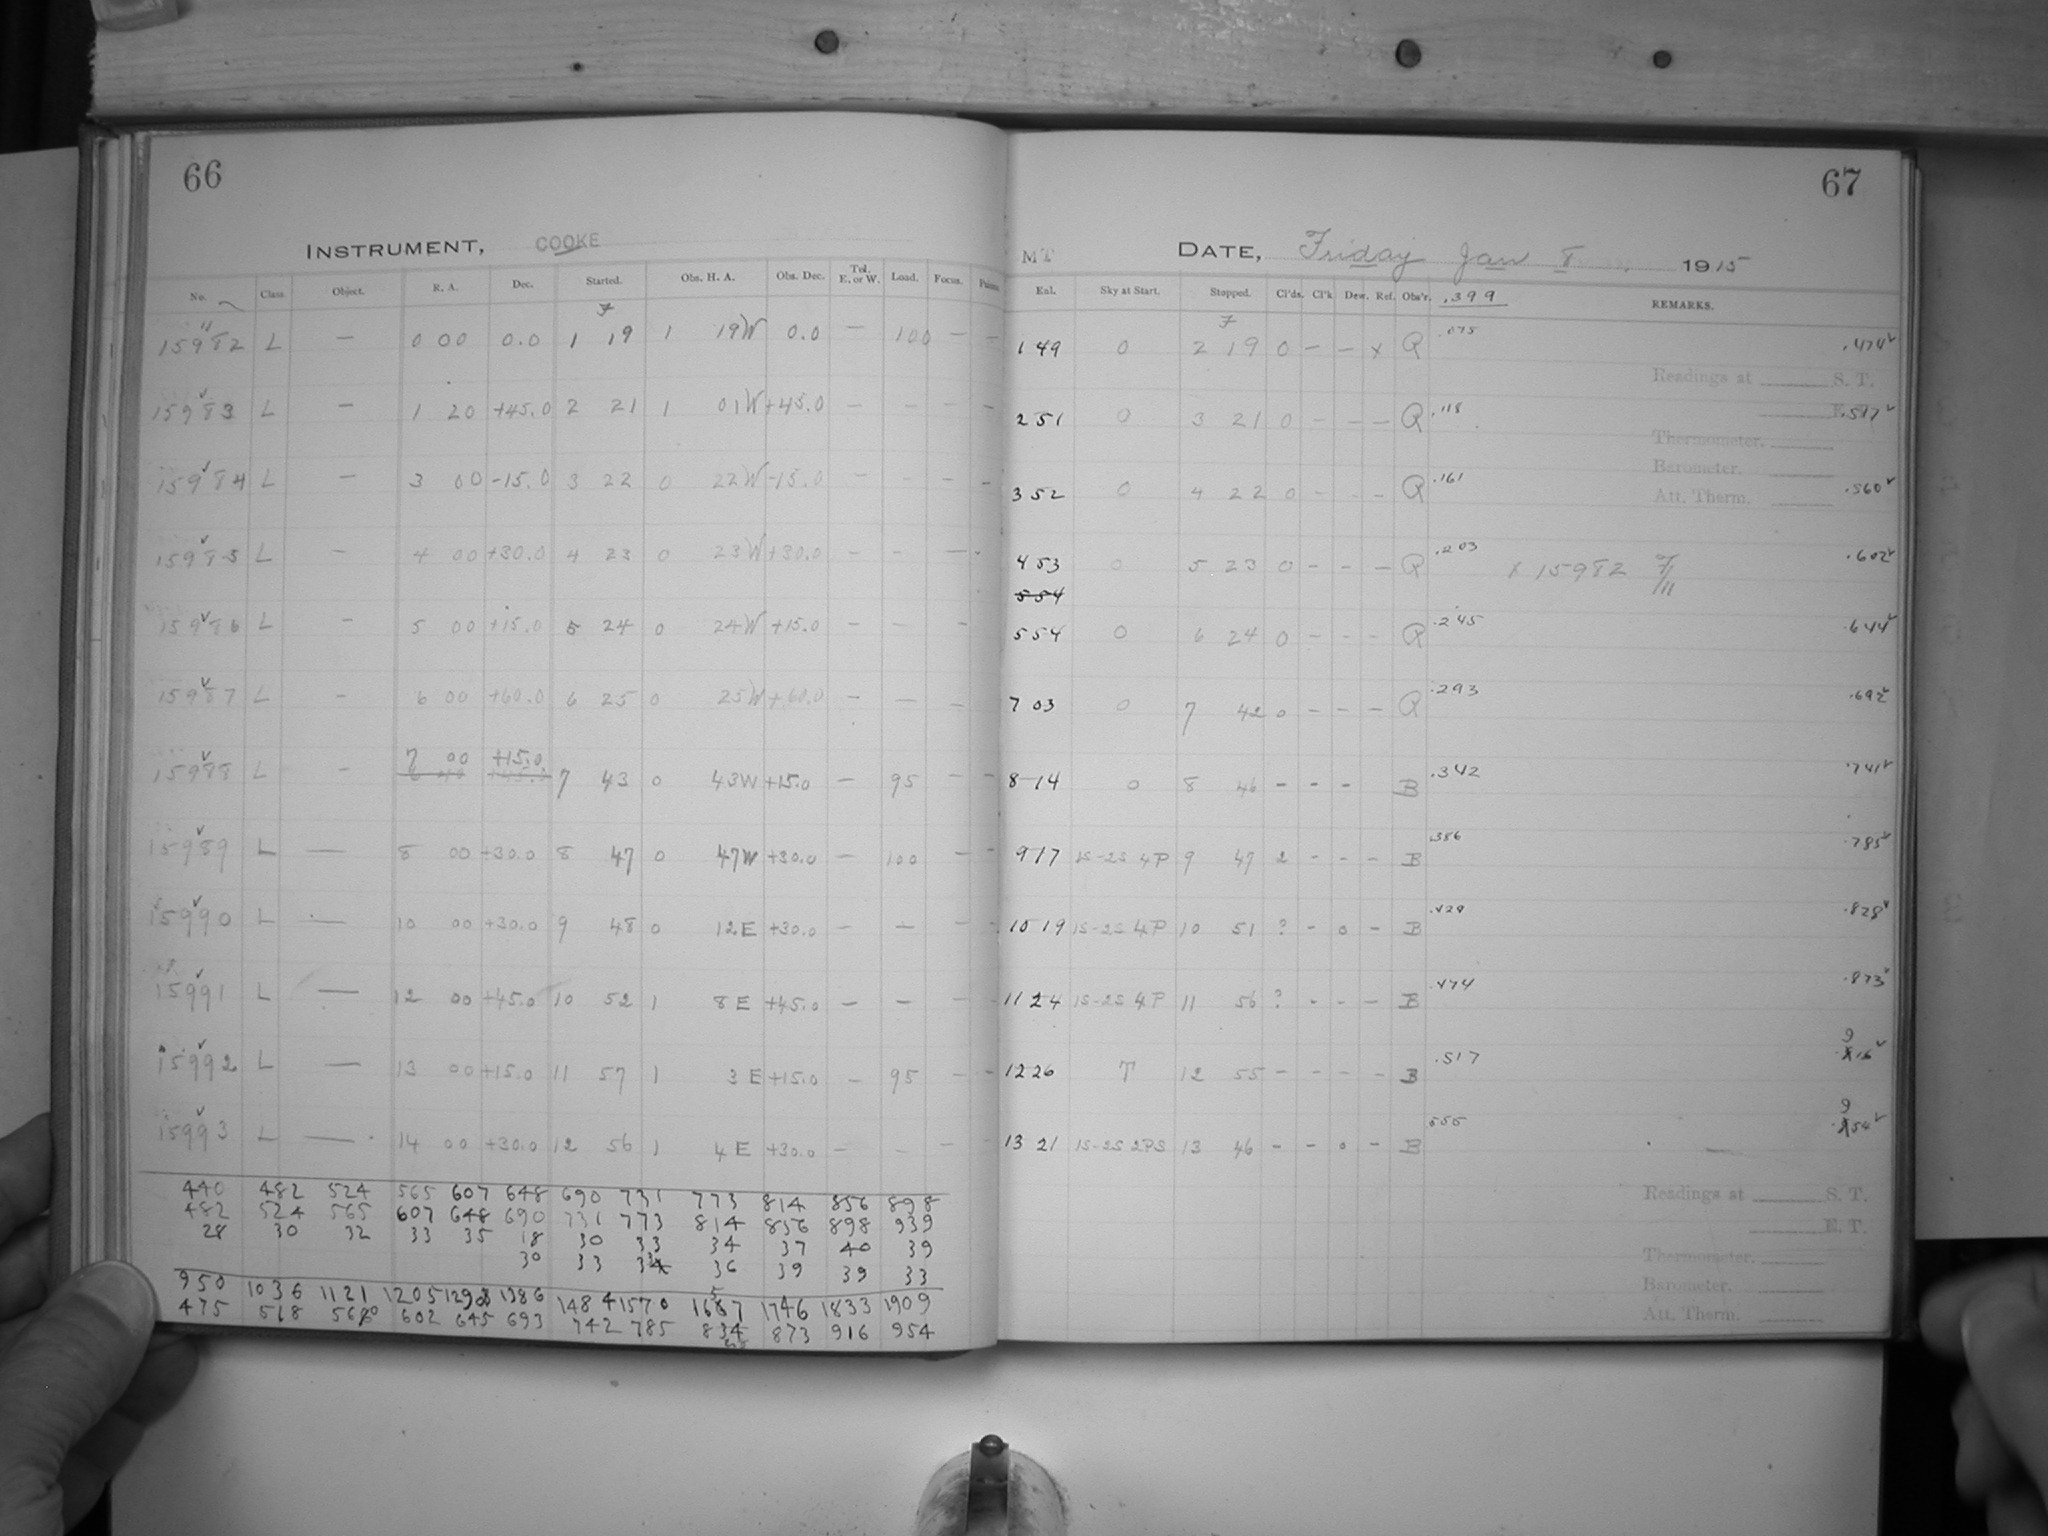 66
INSTRUMENT, COOKE
No. Class. Object. R. A. Dec. Started. Obs. H. A. Obs. Dec. Tel. E. or W. Load. Focus.
15982 L — 0 00 0.0 1 19 1 19W 0.0 — 100 — —
15983 L — 1 20 +45.0 2 21 1 01W +45.0 — — — —
15984 L — 3 00 -15.0 3 22 0 22W -15.0 — — — —
15985 L — 4 00 +30.0 4 23 0 23W +30.0 — — —
15986 L — 5 00 +15.0 5 24 0 24W +15.0 — — —
15987 L — 6 00 +60.0 6 25 0 25W +60.0 — — —
15988 L — 7 00 +15.0 7 43 0 43W +15.0 — 95 — —
15989 L — 8 00 +30.0 8 47 0 47W +30.0 — 100 — —
15990 L — 10 00 +30.0 9 48 0 12E +30.0 — — — —
15991 L — 12 00 +45.0 10 52 1 8E +45.0 — — — —
15992 L — 13 00 +15.0 11 57 1 3E +15.0 — 95 — —
15993 L — 14 00 +30.0 12 56 1 4E +30.0 — — — —
440 482 524 565 607 648 690 731 773 814 856 898
482 524 565 607 648 690 731 773 814 856 898 939
28 30 32 33 35 18 30 33 34 37 40 39
30 33 34 36 39 39 33
950 1036 1121 1205 1290 1386 1484 1570 1657 1746 1833 1909
475 518 560 602 645 693 742 785 873 916 954
67
MT DATE, Friday Jan 8 1915
Eql. Sky at Start. Stopped. Cl'ds. Cl'k Dew. Ref. Obs'r. .399 REMARKS.
1 49 0 2 19 0 — — x Q .075 .474
Readings at S. T.
2 51 0 3 21 0 — — — Q .118 E. T. .517
Thermometer.
Barometer.
3 52 0 4 22 0 — — — Q .161 .560
Att. Therm.
4 53 0 5 23 0 — — — Q .203 x 15982 .602
5 54
5 54 0 6 24 0 — — — Q .245 .644
7 03 0 7 42 0 — — — Q .293 .692
8 14 0 8 46 — — — B .342 .741
9 17 1S-2S 4P 9 47 2 — — — B .386 .785
10 19 1S-2S 4P 10 51 ? — 0 — B .429 .828
11 24 1S-2S 4P 11 56 ? — — — B .474 .873
12 26 T 12 55 — — — — B .517 .916
13 21 1S-2S 2PS 13 46 — — 0 — B 555 .954
Readings at S. T.
E. T.
Thermometer.
Barometer.
Att. Therm.